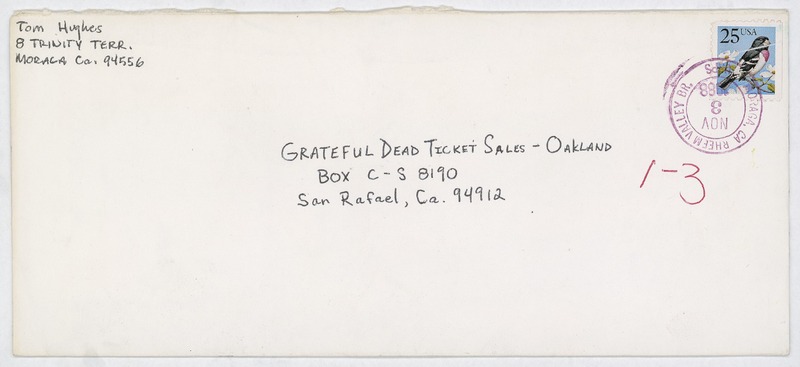 Tom Hughes
8 TRINITY TERR.
MORAGA Ca. 94556
25 USA
MORAGA, CA RHEEM VALLEY BR.
NOV
3
1988
GRATEFUL DEAD TICKET SALES - OAKLAND
BOX C-S 8190
San Rafael, Ca. 94912
1-3